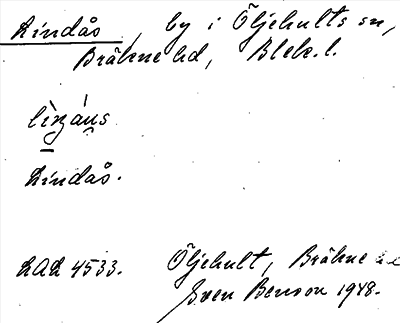 Lindås, by i Öljehults sn,
Bräkne hd, Blek. l.
Lindås.
LAL 4533. Öljehult, Bräkne hd
Sven Benson 1948.